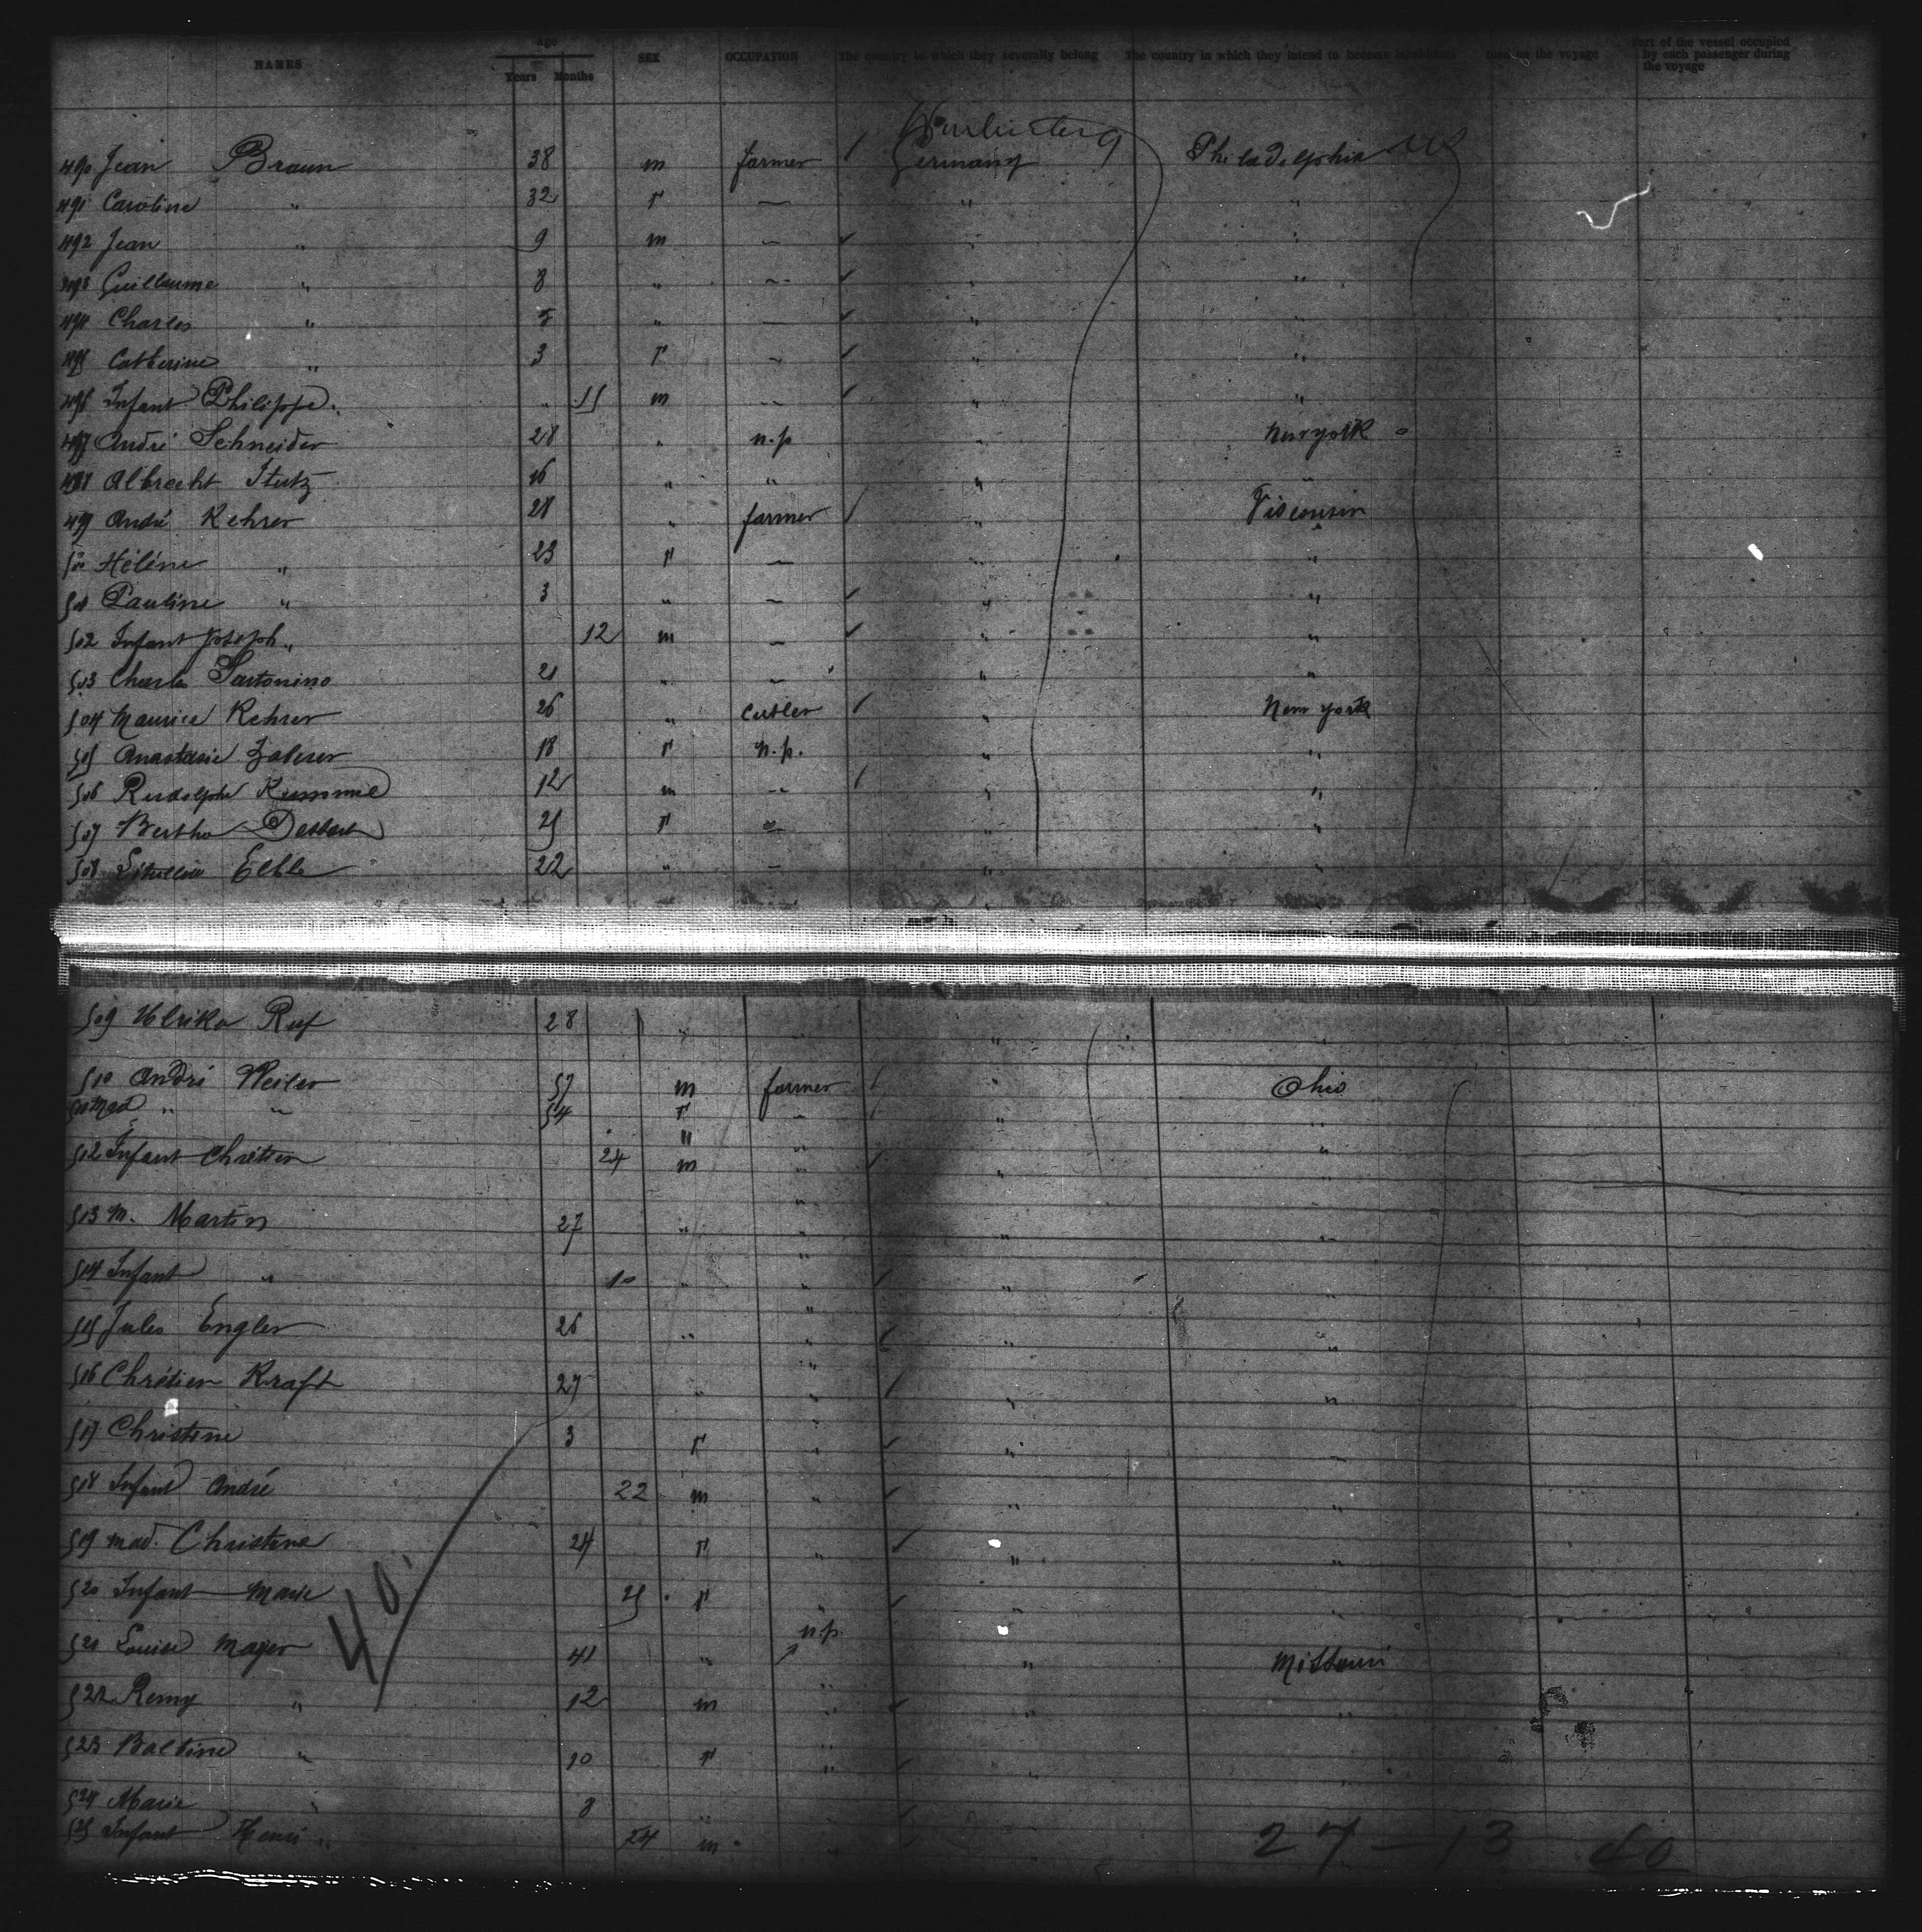 NAMES Age Years Months SEX OCCUPATION The country to which they severally belong The country in which they intend to become inhabitants Died on the voyage Part of the vessel occupied by each passenger during the voyage
490 Jean Braun 38 m farmer Germany Philadelphia
491 Caroline " 32 F — " "
492 Jean " 9 m — " "
493 Guillaume " 8 " — " "
494 Charles " 5 " — " "
495 Catherine " 3 F — " "
496 Infant Philippe " 11 m — " "
497 André Schneider 28 " n.p " New york
498 Albrecht Stutz 16 " " " "
499 André Kehrer 28 " farmer " Visconsin
500 Hélène " 23 F — " "
501 Pauline " 3 " — " "
502 Infant Joseph " 12 m — " "
503 Charles Sartonino 21 " — " "
504 Maurice Kehrer 26 " Cutler " New york
505 Anastasie Zaberer 18 F n.p. " "
506 Rudolphe Kummel 12 m — " "
507 Bertha 25 F — " "
508 Eble 22 " — " "
509 Ulrike Ruf 28 " " "
510 André Weiler 57 m farmer " Ohio
511 Mad " " 54 F — " "
512 Infant Chrétien 24 m " " "
513 M. Martin 27 " " " "
514 Infant " 10 " " " "
515 Jules Engler 26 " " " "
516 Chrétien Kraft 27 " " " "
517 Christine 3 F " " "
518 Infant André 22 m " " "
519 mad. Christine 24 F " " "
520 Infant Marie 25 F " " "
521 Louise Mayer 41 " n.p. " Missouri
522 Remy " 12 m " " "
523 " 10 F " " "
524 Marie " 8 "
525 Infant Henri " 24 m "
40
27 — 13 40